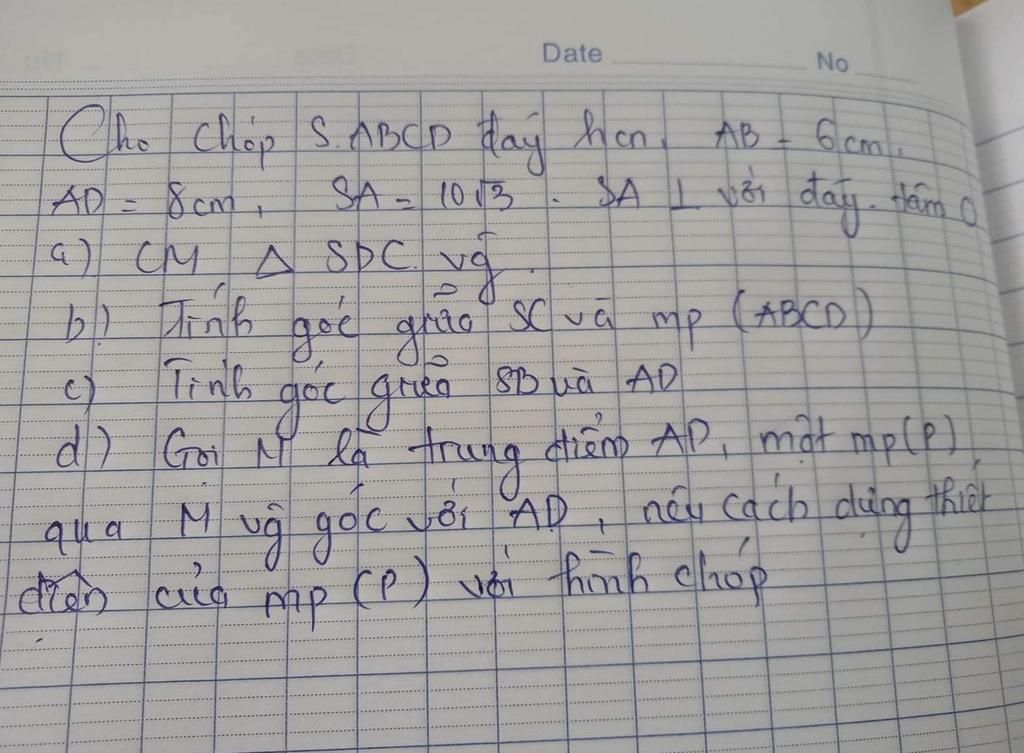 Date
No
Cho chóp S.ABCD đáy hcn, AB = 6cm,
AD = 8cm, SA = 10√3. SA ⊥ với đáy. tâm O
a) CM Δ SDC vg
b) Tính góc giữa SC và mp (ABCD)
c) Tính góc giữa SB và AD
d) Gọi M là trung điểm AD, một mp(P)
qua M vg góc với AD, nêu cách dựng thiết
diện của mp (P) với hình chóp